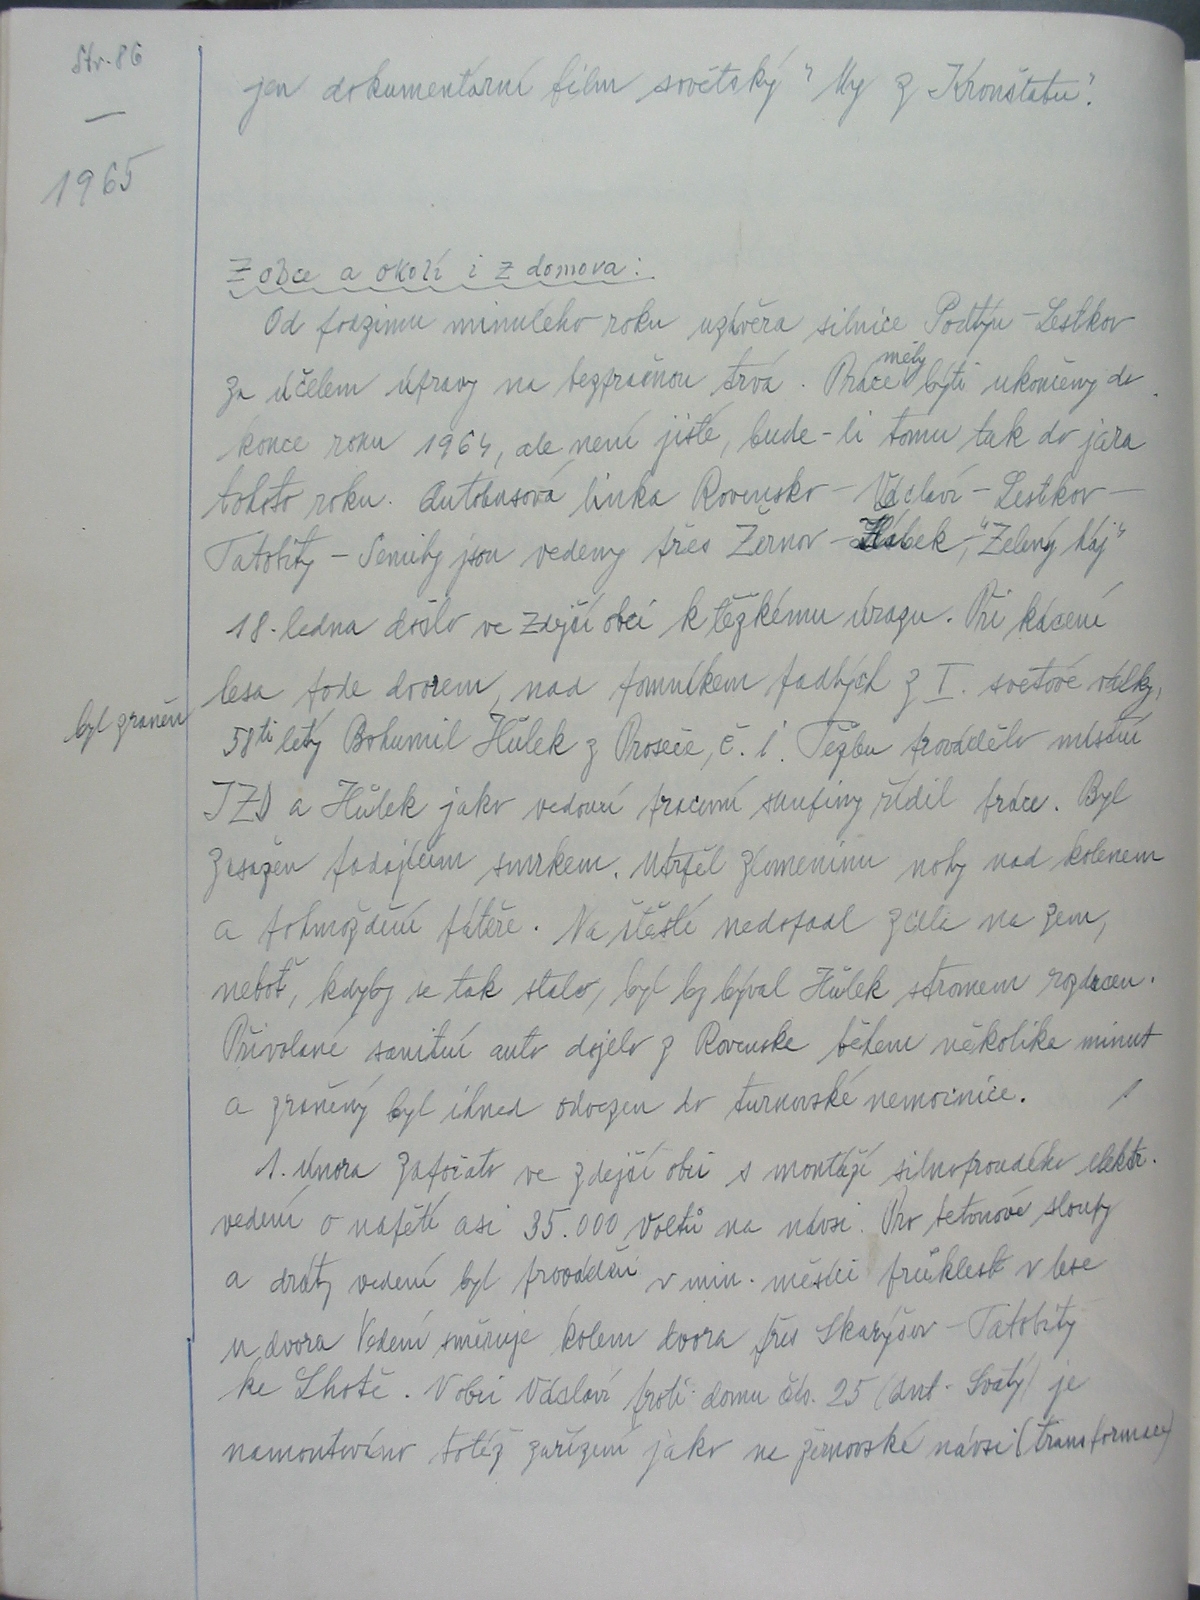 Str. 86
—
1965
jen dokumentární film sovětský "My z Kronštatu".
Z obce a okolí i z domova:
Od podzimu minulého roku uzávěra silnice Podtýn - Lestkov
měly
za účelem úpravy na bezprašnou trvá. Práce býti ukončeny do
konce roku 1964, ale není jisté, bude-li tomu tak do jara
tohoto roku. Autobusová linka Rovensko - Václaví - Lestkov -
Tatobity - Semily jsou vedeny přes Žernov - Hábek, "Zelený háj"
18. ledna došlo ve zdejší obci k těžkému úrazu. Při kácení
lesa pode dvorem, nad pomníkem padlých z I. světové války,
byl zraněn
58ti letý Bohumil Hůlek z Proseče, č. 1. Těžbu provádělo místní
JZD a Hůlek jako vedoucí pracovní skupiny řídil práce. Byl
zasažen padajícím smrkem. Utrpěl zlomeninu nohy nad kolenem
a pohmoždění páteře. Na štěstí nedopadl zcela na zem,
neboť, kdyby se tak stalo, byl by býval Hůlek stromem rozdrcen.
Přivolané sanitní auto dojelo z Rovenska během několika minut
a zraněný byl ihned odvezen do turnovské nemocnice.
1. února započato ve zdejší obci s montáží silnoproudého elektr.
vedení o napětí asi 35.000 Voltů na návsi. Pro betonové sloupy
a dráty vedení byl prováděn v min. měsíci průklest v lese
u dvora Vedení směřuje kolem dvora přes Skaryšov - Tatobity
ke Lhotě. V obci Václaví proti domu čís. 25 (Ant. Svatý) je
namontováno totéž zařízení jako na žernovské návsi (transformace)